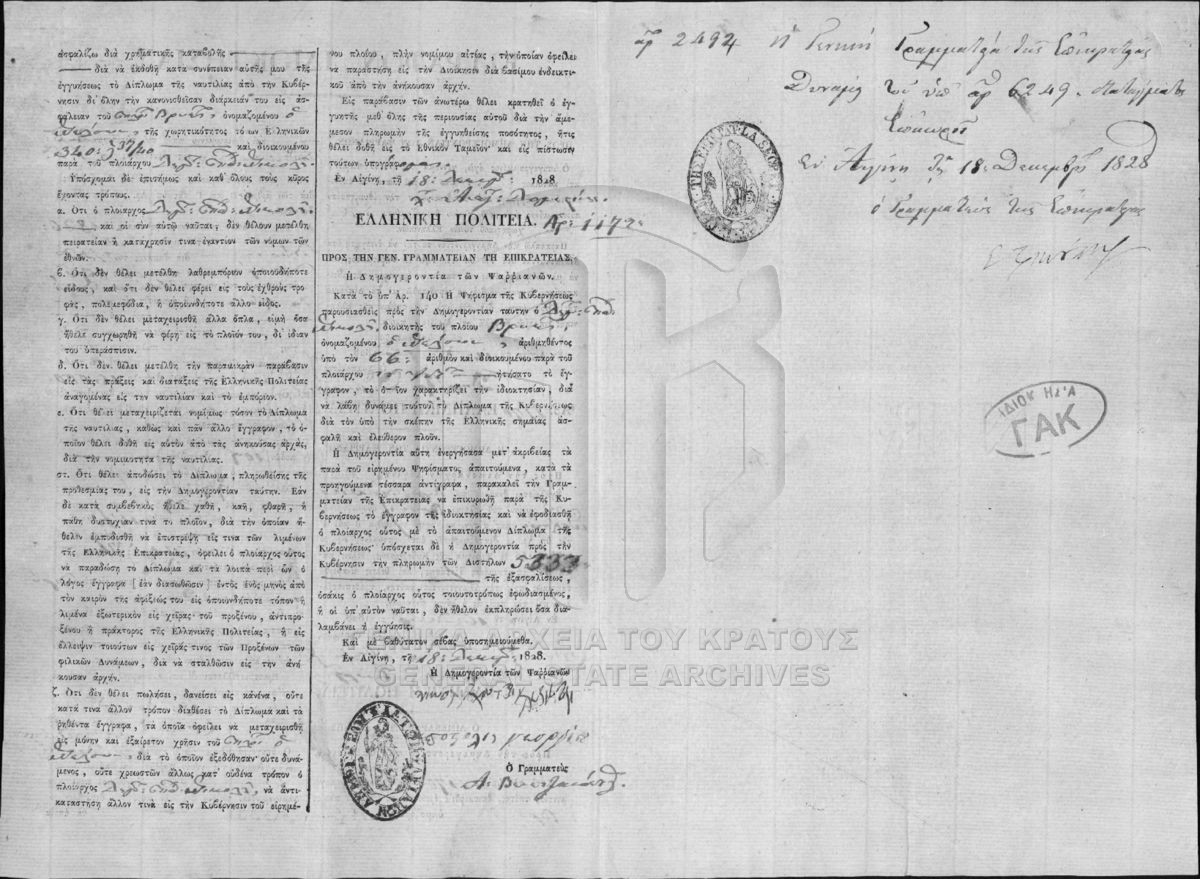 ἀσφαλίζω διὰ χρηματικῆς καταβολῆς
διὰ νὰ ἐκδοθῇ κατὰ συνέπειαν αὐτῆς μου τῆς
ἐγγυήσεως τὸ Δίπλωμα τῆς ναυτιλίας ἀπὸ τὴν Κυβέρ-
νησιν δι' ὅλην τὴν κανονισθεῖσαν διάρκειάν του εἰς ἀσ-
φάλειαν τοῦ ὀνομαζομένου ὁ
τῆς χωρητικότητος τόνων Ἑλληνικῶν
340: 37/40 καὶ διοικουμένου
παρὰ τοῦ πλοιάρχου
Ὑπόσχομαι δὲ ἐπισήμως καὶ καθ' ὅλους τοὺς κῦρος
ἔχοντας τρόπους.
α. Ὅτι ὁ πλοίαρχος
καὶ οἱ σὺν αὐτῷ ναῦται, δὲν θέλουν μετέλθῃ
πειρατείαν ἢ κατάχρησίν τινα ἐναντίον τῶν νόμων τῶν
ἐθνῶν.
β. Ὅτι δὲν θέλει μετέλθῃ λαθρεμπόριον ὁποιουδήποτε
εἴδους, καὶ ὅτι δὲν θέλει φέρει εἰς τοὺς ἐχθροὺς τρο-
φάς, πολεμεφόδια, ἢ ὁποιονδήποτε ἄλλο εἶδος.
γ. Ὅτι δὲν θέλει μεταχειρισθῇ ἄλλα ὅπλα, εἰμὴ ὅσα
ἤθελε συγχωρηθῇ νὰ φέρῃ εἰς τὸ πλοῖόν του, δι' ἰδίαν
του ὑπεράσπισιν.
δ. Ὅτι δὲν θέλει μετέλθῃ τὴν παραμικρὰν παράβασιν
εἰς τὰς πράξεις καὶ διατάξεις τῆς Ἑλληνικῆς Πολιτείας
ἀναγομένας εἰς τὴν ναυτιλίαν καὶ τὸ ἐμπόριον.
ε. Ὅτι θέλει μεταχειρίζεται νομίμως τόσον τὸ Δίπλωμα
τῆς ναυτιλίας, καθὼς καὶ πᾶν ἄλλο ἔγγραφον, τὸ ὁ-
ποῖον θέλει δοθῇ εἰς αὐτὸν ἀπὸ τὰς ἀνηκούσας ἀρχάς,
διὰ τὴν νομιμότητα τῆς ναυτιλίας.
στ. Ὅτι θέλει ἀποδώσει τὸ Δίπλωμα, πληρωθείσης τῆς
προθεσμίας του, εἰς τὴν Δημογεροντίαν ταύτην. Ἐὰν
δὲ κατὰ συμβεβηκὸς ἤθελε χαθῇ, καῇ, φθαρῇ, ἢ
πάθῃ δυστυχίαν τινὰ τὸ πλοῖον, διὰ τὴν ὁποίαν ἤ-
θελεν ἐμποδισθῇ νὰ ἐπιστρέψῃ εἴς τινα τῶν λιμένων
τῆς Ἑλληνικῆς Ἐπικρατείας, ὀφείλει ὁ πλοίαρχος οὗτος
νὰ παραδώσῃ τὸ Δίπλωμα καὶ τὰ λοιπὰ περὶ ὧν ὁ
λόγος ἔγγραφα [ἐὰν διασωθῶσιν] ἐντὸς ἑνὸς μηνὸς ἀπὸ
τὸν καιρὸν τῆς ἀφίξεώς του εἰς ὁποιονδήποτε τόπον ἢ
λιμένα ἐξωτερικὸν εἰς χεῖρας τοῦ προξένου, ἀντιπρο-
ξένου ἢ πράκτορος τῆς Ἑλληνικῆς Πολιτείας, ἢ εἰς
ἔλλειψιν τοιούτων εἰς χεῖράς τινος τῶν Προξένων τῶν
φιλικῶν Δυνάμεων, διὰ νὰ σταλθῶσιν εἰς τὴν ἀνή-
κουσαν ἀρχήν.
ζ. Ὅτι δὲν θέλει πωλήσει, δανείσει εἰς κανένα, οὔτε
κατά τινα ἄλλον τρόπον διαθέσει τὸ Δίπλωμα καὶ τὰ
ῥηθέντα ἔγγραφα, τὰ ὁποῖα ὀφείλει νὰ μεταχειρισθῇ
εἰς μόνην καὶ ἐξαίρετον χρῆσιν τοῦ ὁ
διὰ τὸ ὁποῖον ἐξεδόθησαν· οὔτε δυνά-
μενος, οὔτε χρεωστῶν ἄλλως κατ' οὐδένα τρόπον ὁ
πλοίαρχος νὰ ἀντι-
καταστήσῃ ἄλλον τινὰ εἰς τὴν Κυβέρνησιν τοῦ εἰρημέ-
νου πλοίου, πλὴν νομίμου αἰτίας, τὴν ὁποίαν ὀφείλει
νὰ παραστήσῃ εἰς τὴν Διοίκησιν διὰ βασίμου ἐνδεικτι-
κοῦ ἀπὸ τὴν ἀνήκουσαν ἀρχήν.
Εἰς παράβασιν τῶν ἀνωτέρω θέλει κρατηθεῖ ὁ ἐγ-
γυητὴς μεθ' ὅλης τῆς περιουσίας αὐτοῦ διὰ τὴν ἄμε-
μεσον πληρωμὴν τῆς ἐγγυηθείσης ποσότητος, ἥτις
θέλει δοθῇ εἰς τὸ Ἐθνικὸν Ταμεῖον· καὶ εἰς πίστωσιν
τούτων ὑπογράφομαι.
Ἐν Αἰγίνῃ, τῇ 18: Δεκεμ: 1828
ΕΛΛΗΝΙΚΗ ΠΟΛΙΤΕΙΑ. Ἀρ: 1172:
ΠΡΟΣ ΤΗΝ ΓΕΝ. ΓΡΑΜΜΑΤΕΙΑΝ ΤΗ ΕΠΙΚΡΑΤΕΙΑΣ.
Ἡ Δημογεροντία τῶν Ψαρριανῶν.
Κατὰ τὸ ὑπ' Ἀρ. 140 Ἡ Ψήφισμα τῆς Κυβερνήσεως
παρουσιασθεὶς πρὸς τὴν Δημογεροντίαν ταύτην ὁ
διοικητὴς τοῦ πλοίου
ὀνομαζομένου ὁ ἀριθμηθέντος
ὑπὸ τὸν 66: ἀριθμὸν καὶ διοικουμένου παρὰ τοῦ
πλοιάρχου ἠτήσατο τὸ ἔγ-
γραφον, τὸ ὁποῖον χαρακτηρίζει τὴν ἰδιοκτησίαν, διὰ
νὰ λάβῃ δυνάμει τούτου τὸ Δίπλωμα τῆς Κυβερνήσεως
διὰ τὸν ὑπὸ τὴν σκέπην τῆς Ἑλληνικῆς σημαίας
ἀσφαλῆ καὶ ἐλεύθερον πλοῦν.
Ἡ Δημογεροντία αὕτη ἐνεργήσασα μετ' ἀκριβείας τὰ
παρὰ τοῦ εἰρημένου Ψηφίσματος ἀπαιτούμενα, κατὰ τὰ
προηγούμενα τέσσαρα ἀντίγραφα, παρακαλεῖ τὴν Γραμ-
ματείαν τῆς Ἐπικρατείας νὰ ἐπικυρωθῇ παρὰ τῆς Κυ-
βερνήσεως τὸ ἔγγραφον τῆς ἰδιοκτησίας καὶ νὰ ἐφοδιασθῇ
ὁ πλοίαρχος οὗτος μὲ τὸ ἀπαιτούμενον Δίπλωμα τῆς
Κυβερνήσεως· ὑπόσχεται δὲ ἡ Δημογεροντία πρὸς τὴν
Κυβέρνησιν τὴν πληρωμὴν τῶν Διστήλων 5333
τῆς ἐξασφαλίσεως,
ὁσάκις ὁ πλοίαρχος οὗτος τοιουτοτρόπως ἐφωδιασμένος,
ἢ οἱ ὑπ' αὐτὸν ναῦται, δὲν ἤθελον ἐκπληρώσει ὅσα δια-
λαμβάνει ἡ ἐγγύησις.
Καὶ μὲ βαθύτατον σέβας ὑποσημειούμεθα.
Ἐν Αἰγίνῃ, τῇ 18: Δεκεμ: 1828.
Ἡ Δημογεροντία τῶν Ψαρριανῶν
Ὁ Γραμματεὺς
ἀρ 2492 Ἡ Γενικὴ Γραμματεία τῆς Ἐπικρατείας
Δυνάμει τοῦ ὑπ' ἀρ 6249
Ἐπικυροῖ
Ἐν Αἰγίνῃ τῇ 18: Δεκεμβρ. 1828
ὁ Γραμματεὺς τῆς Ἐπικρατείας
ΙΔΙΟΚΤΗΣΙΑ
ΓΑΚ
ΓΕΝΙΚΑ ΑΡΧΕΙΑ ΤΟΥ ΚΡΑΤΟΥΣ
GENERAL STATE ARCHIVES